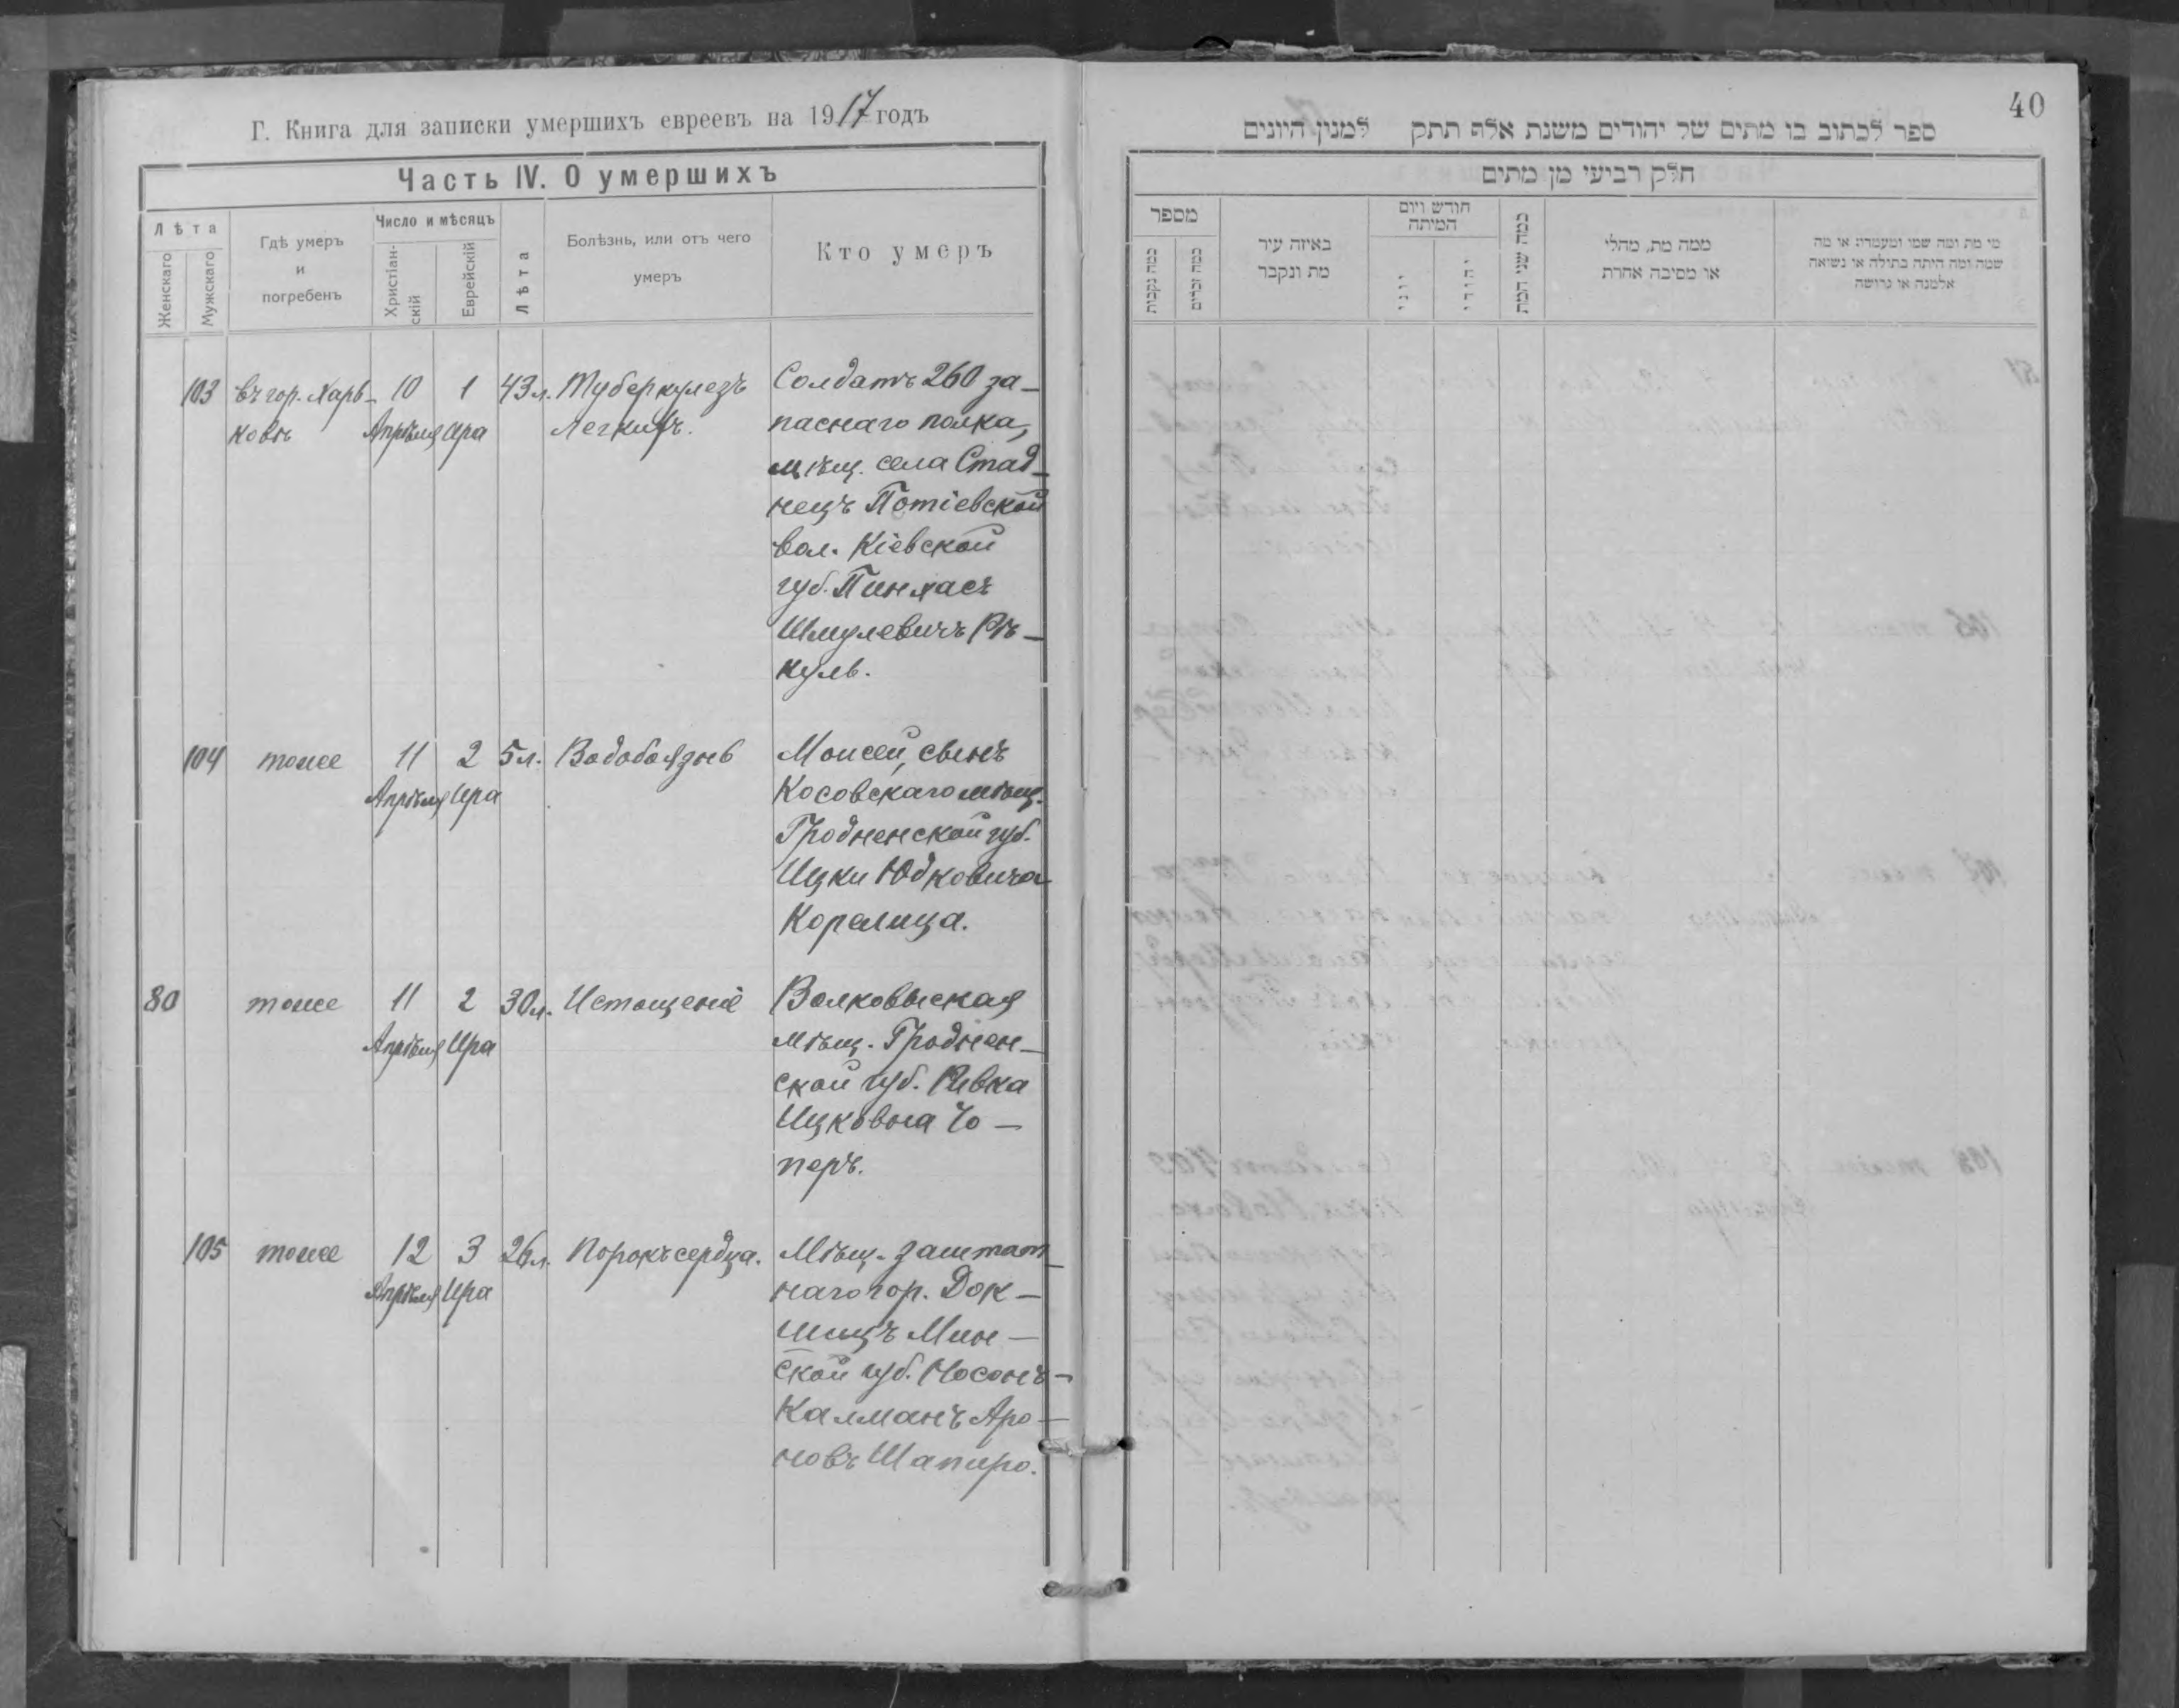 Г. Книга для записки умершихъ евреевъ на 1917 годъ
Часть IV. О умершихъ
Лѣта
Женскаго
Мужскаго
Гдѣ умеръ
и
погребенъ
Число и мѣсяцъ
Христіан-
скій
Еврейскій
Лѣта
Болѣзнь, или отъ чего
умеръ
Кто умеръ
103 въ гор. Харь- 10 1 43 л. Туберкулезъ Солдатъ 260 за-
ковѣ Апрѣля Ира Легкихъ. паснаго полка,
мѣщ. села Стад-
нецъ Потіевской
вол. Кіевской
губ. Пинхасъ
Шмулевичъ Рѣ-
куль.
104 тоже 11 2 5 л. Водобоязнь Моисей, сынъ
Апрѣля Ира Косовскаго мѣщ.
Гродненской губ.
Ицки Юдковича
Корелица.
80 тоже 11 2 30 л. Истощеніе Волковыская
Апрѣля Ира мѣщ. Гроднен-
ской губ. Ривка
Ицковна Чо-
перъ.
105 тоже 12 3 26 л. Порокъ сердца. Мѣщ. заштат-
Апрѣля Ира наго гор. Док-
шицъ Мин-
ской губ. Носонъ-
Калманъ Аро-
новъ Шапиро.
40
ספר לכתוב בו מתים של יהודים משנת אלף תתק למנין היונים
חלק רביעי מן מתים
מספר
כמה נקבות
כמה זכרים
באיזה עיר
מת ונקבר
חודש ויום
המיתה
יוני
יהודי
כמה שני המת
ממה מת, מחלי
או מסיבה אחרת
מי מת ומה שמו ומעמדו או מה
שמה ומה היתה בתולה או נשואה
אלמנה או גרושה